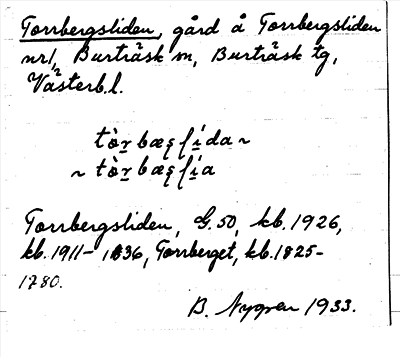 Torrbergsliden, gård å Torrbergsliden
nr 1, Burträsk sn, Burträsk tg,
Västerb. l.
tòr̲bæʂſi̲da ~
~ tòr̲bæʂſi̲a
Torrbergsliden, G. 50, kb. 1926,
kb. 1911-1836, Torrberget, kb. 1825-
1780.
B. Nygren 1933.